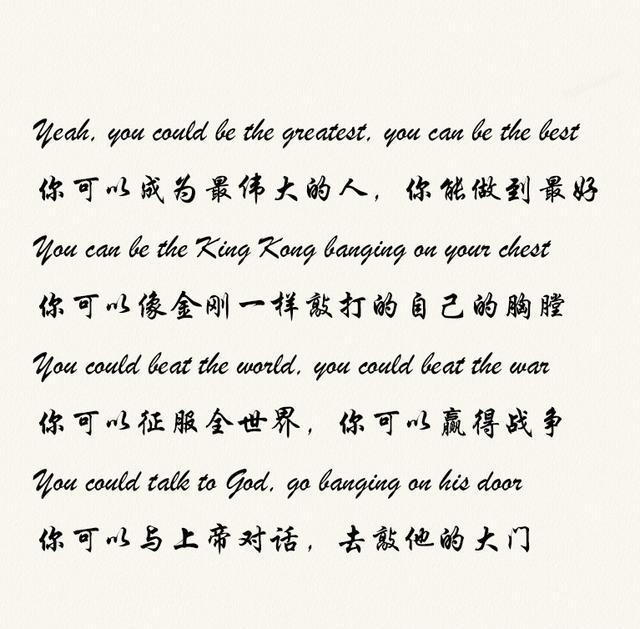 Yeah, you could be the greatest, you can be the best
你可以成为最伟大的人，你能做到最好
You can be the King Kong banging on your chest
你可以像金刚一样敲打的自己的胸膛
You could beat the world, you could beat the war
你可以征服全世界，你可以赢得战争
You could talk to God, go banging on his door
你可以与上帝对话，去敲他的大门